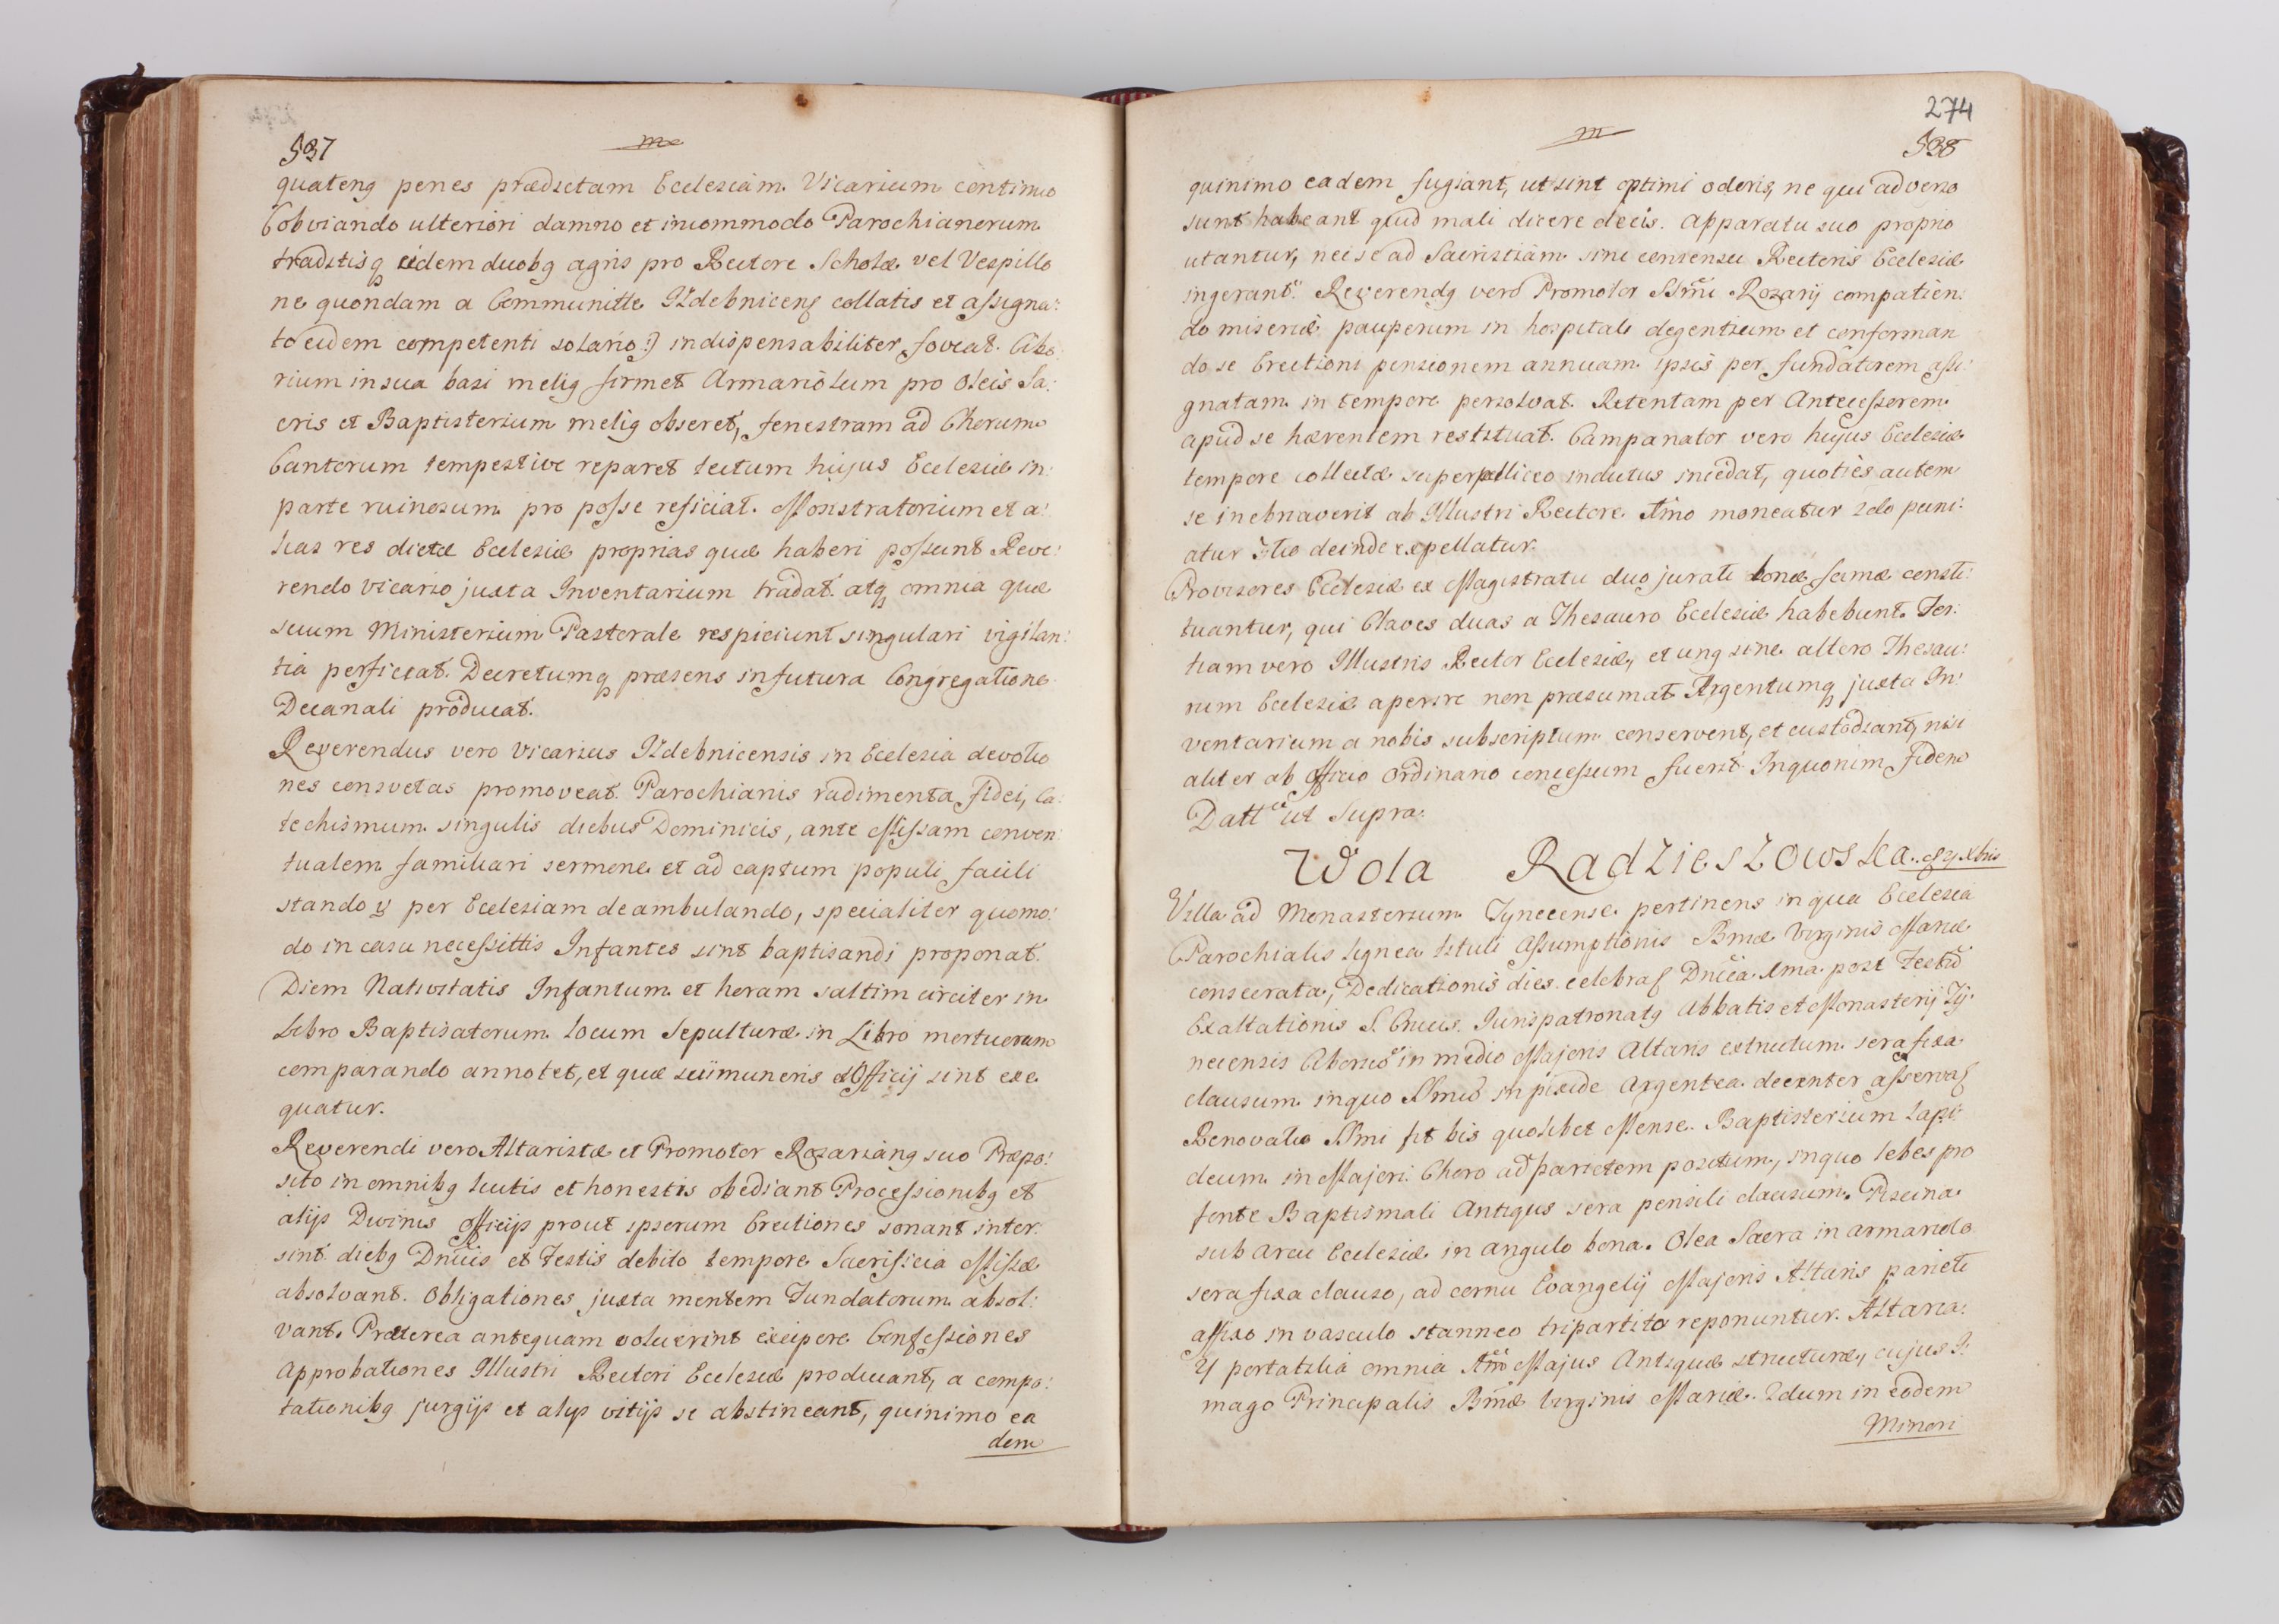 537
m
quateng penes prædictam Ecclesiam Vicarium continuo
(obviando ulteriori damno et incommodo Parochianorum
traditisq eidem duobg agris pro Rectore Scholæ vel Vespillo
ne quondam a Communitte Izdebnicens collatis et assigna:
to eidem competenti solario:) indispensabiliter foveat. Cibo
rium in sua basi melig firmet Armariolum pro Oleis Sa:
cris et Baptisterium melig obseret, fenestram ad Chorum
Cantorum tempestive reparet tectum hujus Ecclesiæ in
parte ruinosum pro posse reficiat. Monstratorium et a:
lias res dictæ Ecclesiæ proprias quæ haberi possunt Reve:
rendo Vicario juxta Inventarium tradat. atq omnia quæ
suum Ministerium Pastorale respiciunt singulari vigilan:
tia perficiat. Decretumq præsens in futura Congregatione
Decanali producat.
Reverendus vero Vicarius Izdebnicensis in Ecclesia devotio
nes consvetas promoveat. Parochianis rudimenta fidei, Ca:
techismum singulis diebus Dominicis, ante Missam conven:
tualem familiari sermone et ad captum populi facili
stando per Ecclesiam deambulando, specialiter quomo:
do in casu necessittis Infantes sint baptisandi proponat.
Diem Nativitatis Infantum et horam saltim circiter in
Libro Baptisatorum. locum Sepulturæ in Libro mortuorum
comparando annotet, et quæ sui muneris et Officij sint exe
quatur.
Reverendi vero Altaristæ et Promotor Rosariang suo Præpo:
sito in omnibg licitis et honestis obediant Processionibg et
alijs Divinis officijs prout ipsorum Erectiones sonant inter
sint. diebg Dnicis et Festis debito tempore Sacrificia Missæ
absolvant. Obligationes juxta mentem Fundatorum absol:
vant. Præterea antequam voluerint excipere Confessiones
Approbationes Illustri Rectori Ecclesiæ producant, a compo:
tationibg jurgijs et alijs vitijs se abstineant, quinimo ea
dem
274
m
538
quinimo eadem fugiant, ut sint optimi odoris, ne qui adverso
sunt habeant quid mali dicere de eis. Apparatu suo proprio
utantur, nec se ad Sacristiam sine consensu Rectoris Ecclesiæ
ingerant. Reverendg vero Promotor SSmi Rozarij compatien:
do miseriæ pauperum in hospitali degentium et conforman
do se Erectioni pensionem annuam ipsis per fundatorem assi:
gnatam in tempore persolvat. Retentam per Antecessorem
apud se hærentem restituat. Campanator vero hujus Ecclesiæ
tempore collectæ superpelliceo indutus incedat, quoties autem
se inebriaverit ab Illustri Rectore Imo moneatur 2do puni:
atur 3tio deinde expellatur.
Provisores Ecclesiæ ex Magistratu duo jurati bonæ famæ consti:
tuantur, qui Claves duas a Thesauro Ecclesiæ habebunt. Ter:
tiam vero Illustris Rector Ecclesiæ, et ung sine altero Thesau:
rum Ecclesiæ aperire non præsumat Argentumq juxta In:
ventarium a nobis subscriptum conservent, et custodiant, nisi
aliter ab Officio Ordinario concessum fuerit. In quorum fidem
Datt ut Supra.
Wola Radzieszowska. 8 Xbris
Villa ad Monasterium Tynecense pertinens in qua Ecclesia
Parochialis lignea tituli Assumptionis Bmæ Virginis Mariæ
consecrata, Dedicationis dies celebras Dnica Ima post Festu
Exaltationis S. Crucis. Jurispatronatg Abbatis et Monasterij Ty:
necensis Ciboriu in medio Majoris Altaris extructum sera fixa
clausum in quo SSmu in pixide Argentea decenter asservas
Renovatio SSmi fit bis quolibet Mense. Baptisterium lapi:
deum in Majori Choro ad parietem positum, in quo lebes pro
fonte Baptismali Antiqus sera pensili clausum. Piscina
sub arcu Ecclesiæ in angulo bona. Olea Sacra in armariolo
sera fixa clauso, ad cornu Evangelij Majoris Altaris parieti
affixo in vasculo stanneo tripartito reponuntur. Altaria
portatilia omnia Imu Majus Antiquæ structuræ, cujus I:
mago Principalis Bmæ Virginis Mariæ. 2dum in eodem
Minori